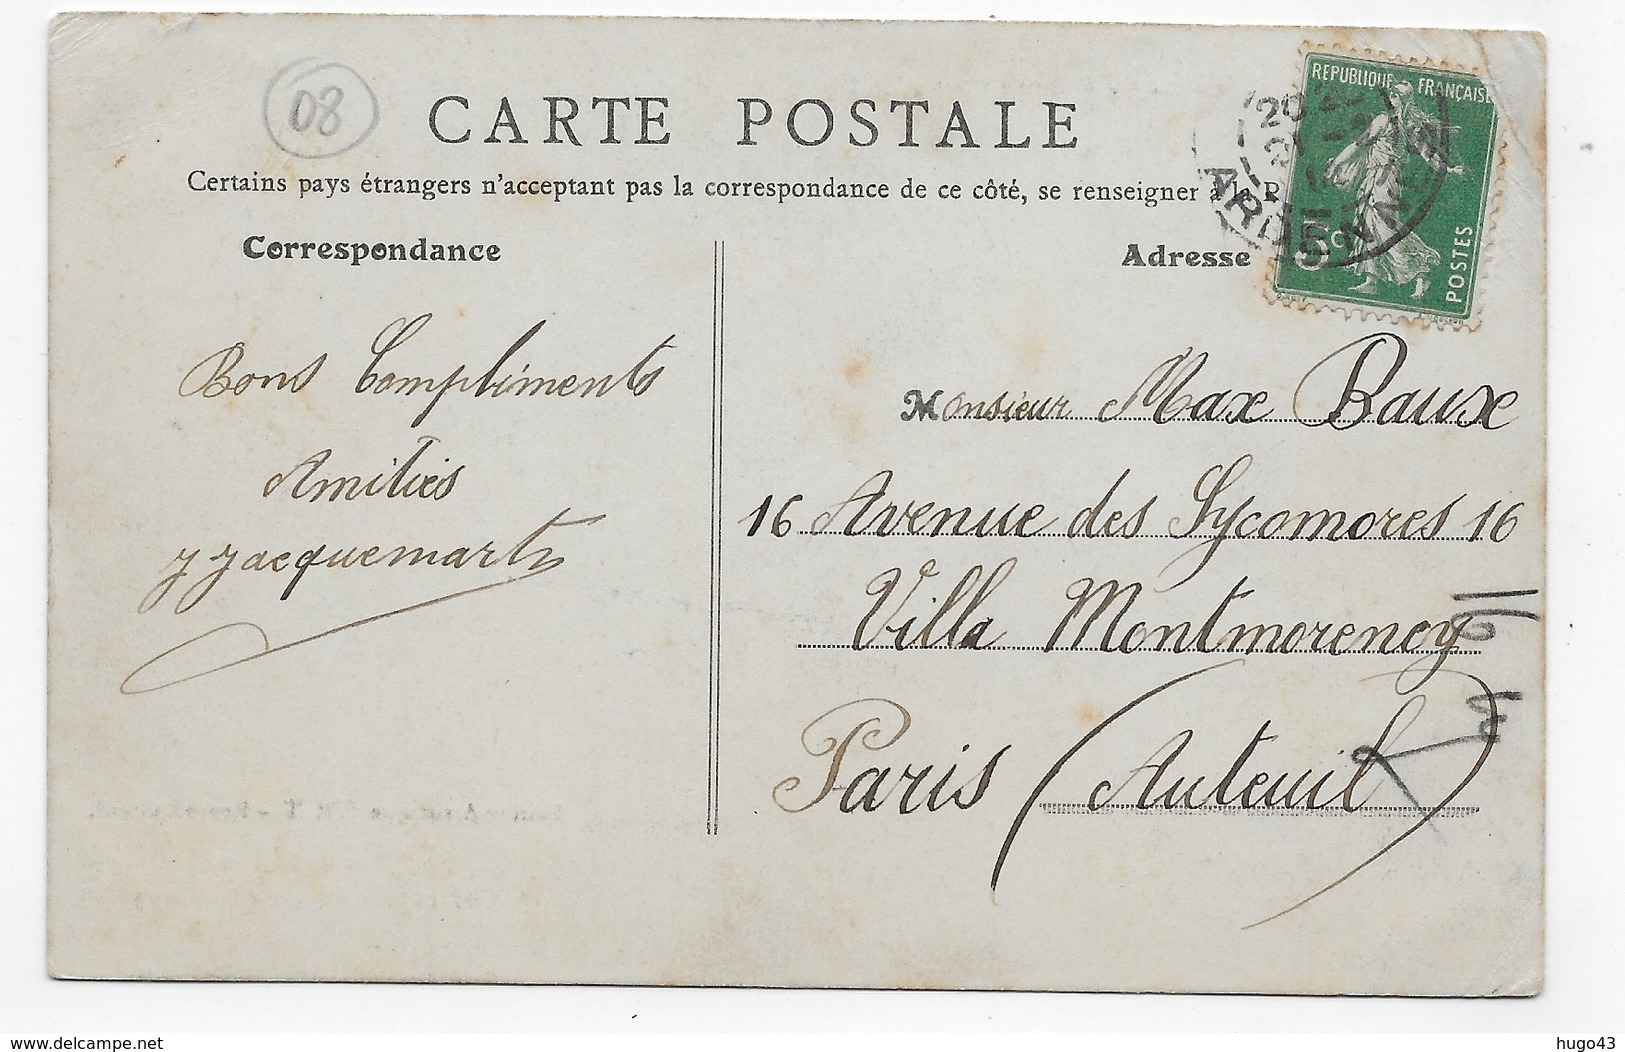 08
CARTE POSTALE
Certains pays étrangers n'acceptant pas la correspondance de ce côté, se renseigner à la
Correspondance
Adresse
REPUBLIQUE FRANÇAISE
POSTES
5c
ARDENNES
Bons Compliments
Amitiés
J Jacquemart
Monsieur Max Bauxe
16 Avenue des Sycomores 16
Villa Montmorency
Paris (Auteuil)
www.delcampe.net
hugo43